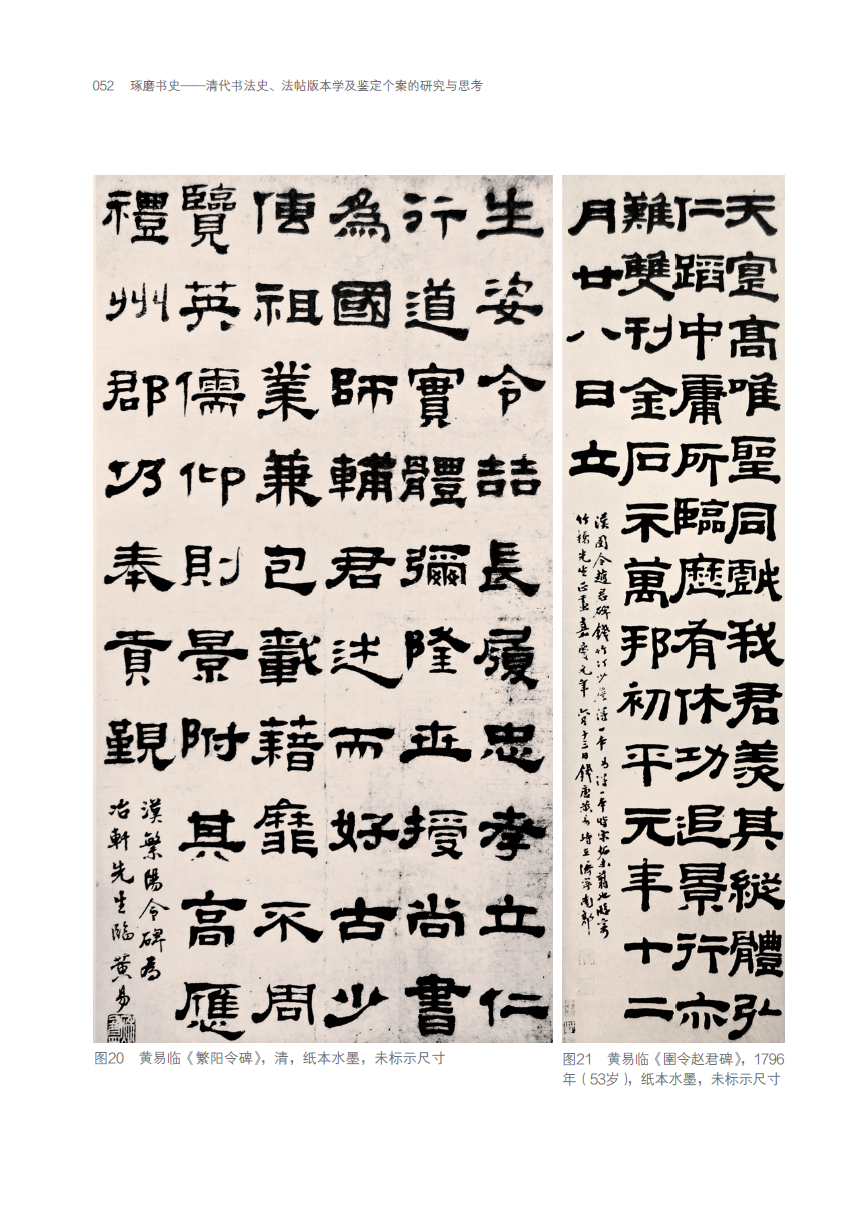 052 琢磨书史——清代书法史、法帖版本学及鉴定个案的研究与思考
生姿令喆長履忠孝立仁
行道實體彌隆世授尚書
為國師輔君述而好古少
傳祖業兼包載藉靡不周
覽英儒仰則景附其高應
禮州郡仍奉貢觐
漢繁陽令碑為
冶軒先生臨 黄易
图20 黄易临《繁阳令碑》，清，纸本水墨，未标示尺寸
天寔高唯聖同戲我君羨其縱體弘
仁蹈中庸所臨歷有休功追景行亦
難雙刊金石示萬邦初平元年十二
月廿八日立
漢圉令趙君碑錢竹汀少詹得一本
竹 先生正畫嘉慶元年 十三日錢唐黄易
图21 黄易临《圉令赵君碑》，1796
年（53岁），纸本水墨，未标示尺寸